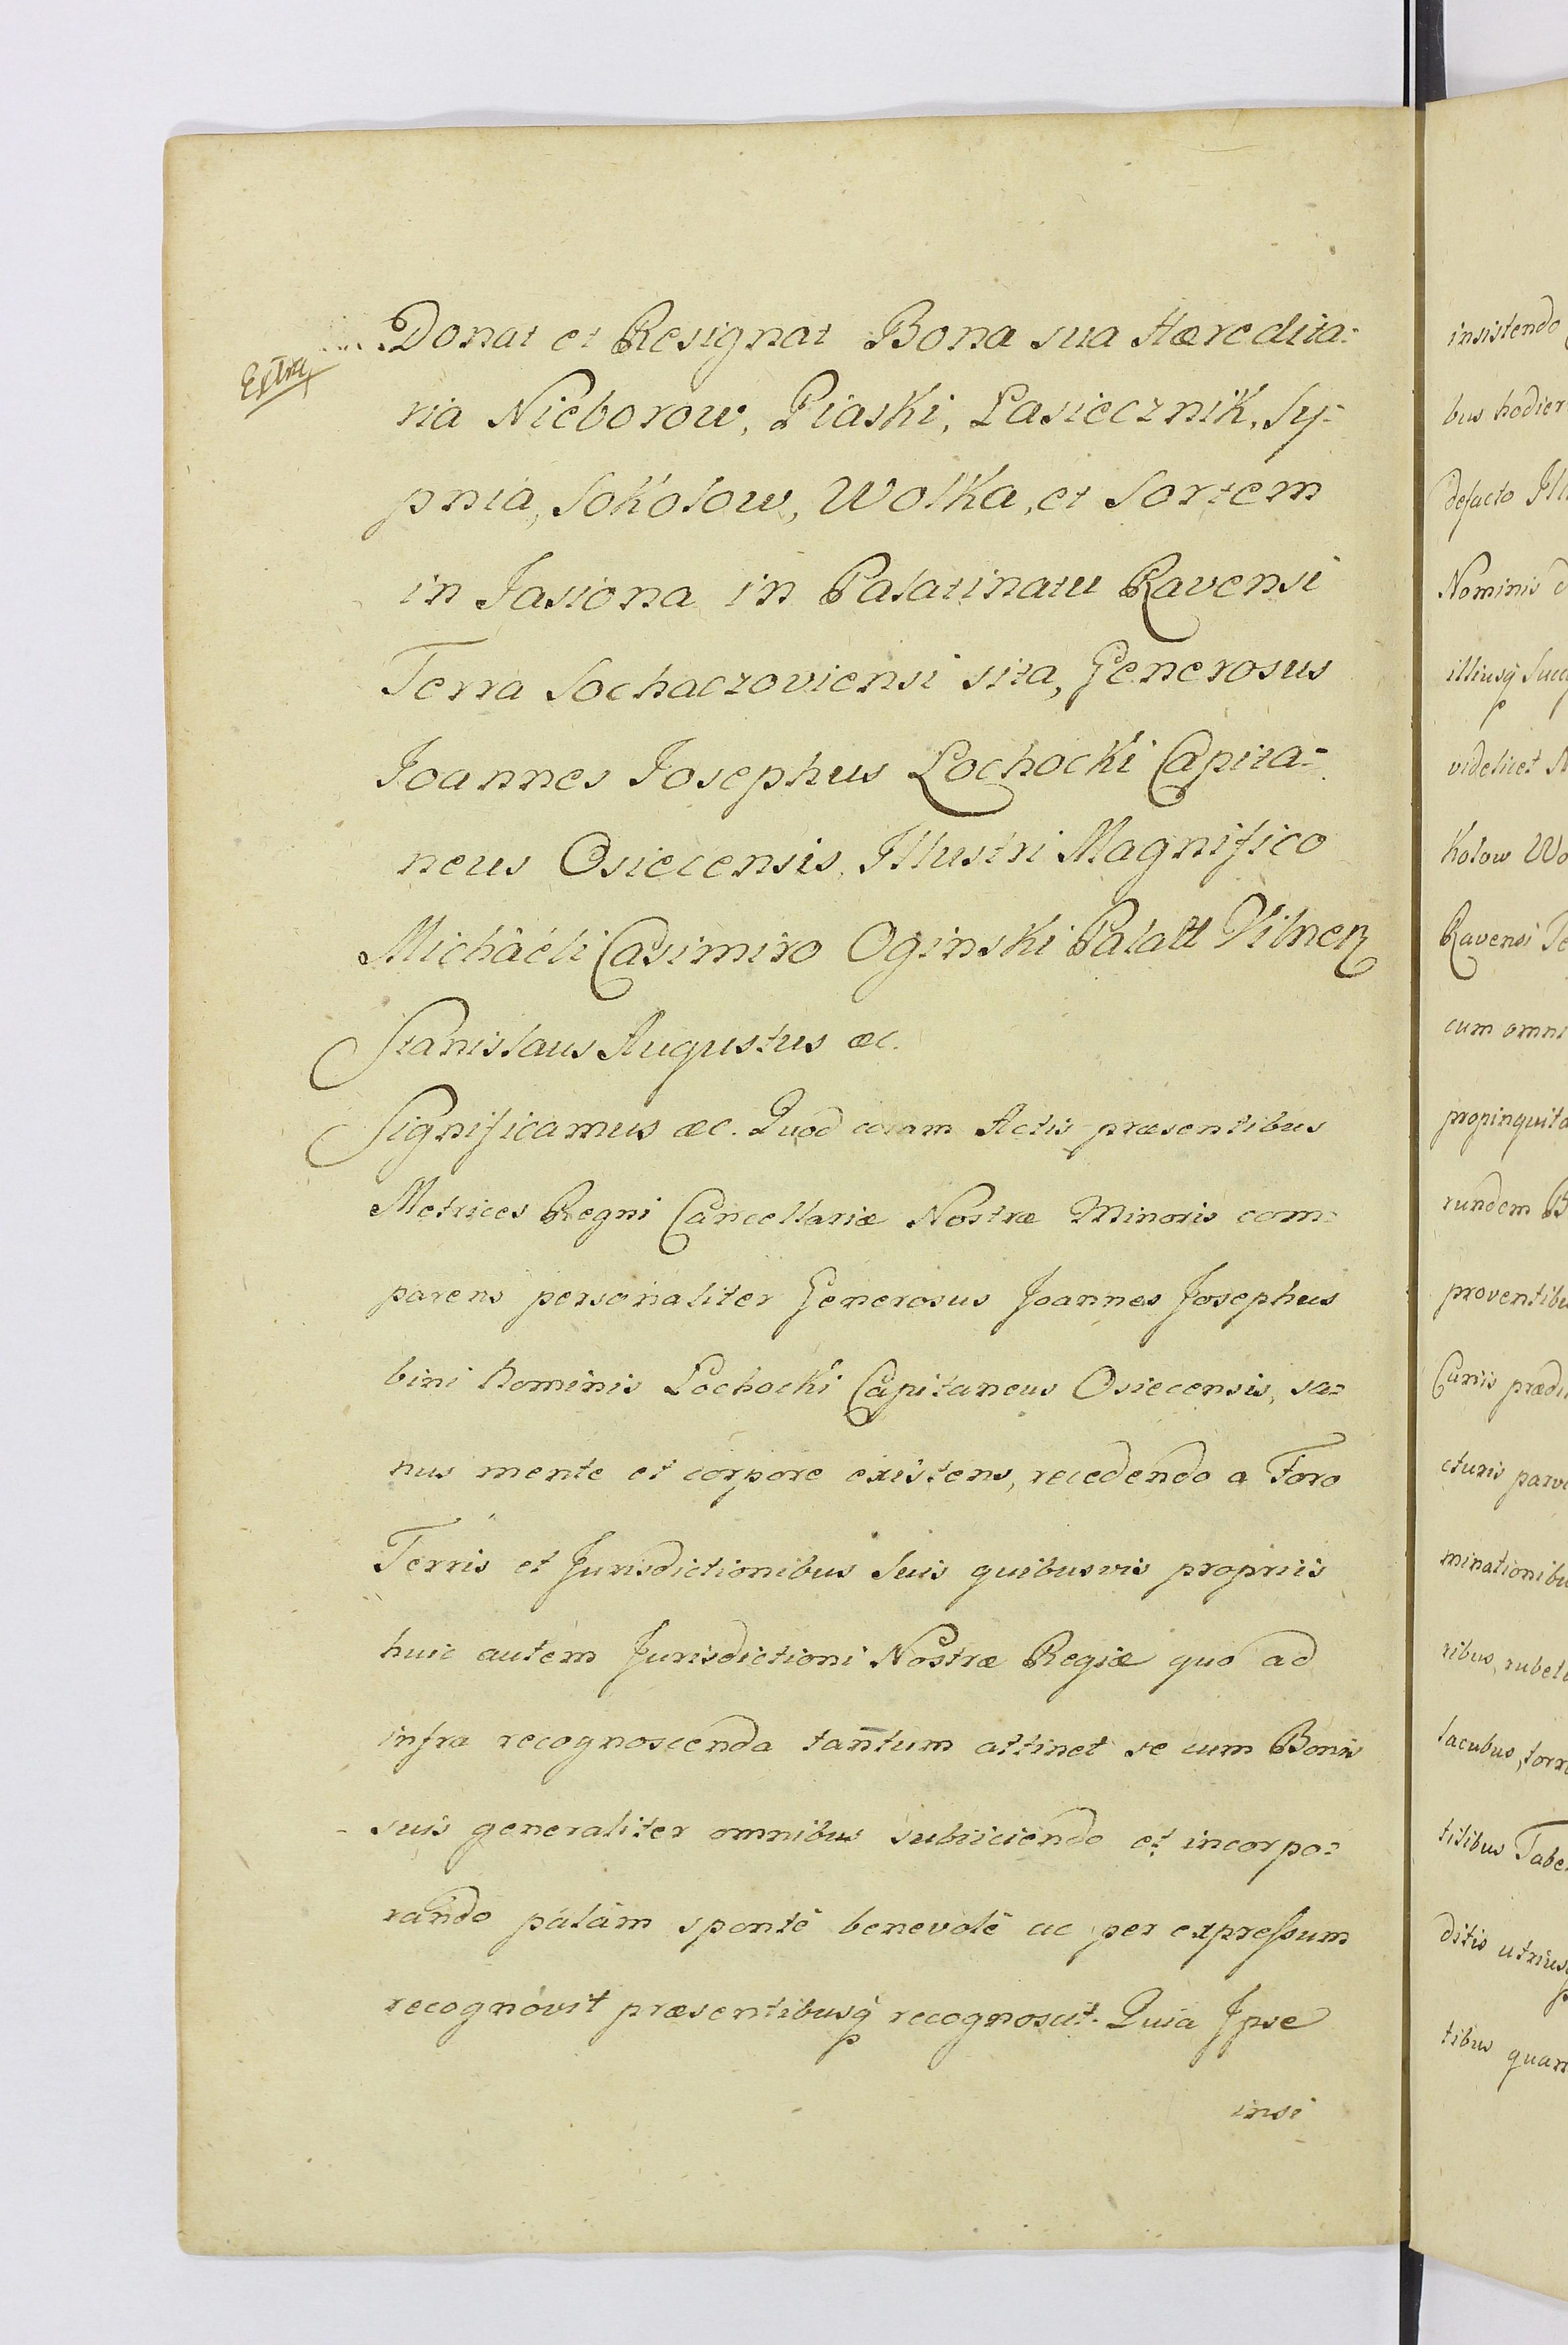 Extra
Donat et Resignat Bona sua Hæredita=
ria Nieborow, Piaski, Pasiecznik, Sy=
pnia, Sokolow, Wolka, et Sortem
in Jasiona in Palatinatu Ravensi
Terra Sochaczoviensi sita, Generosus
Joannes Josephus Lochocki Capita=
neus Osiecensis, Illustri Magnifico
Michàéli Casimiro Oginski Palatt Vilnen
Stanislaus Augustus æc.
Significamus æc. Quod coram Actis præsentibus
Metrices Regni Cancellariæ Nostræ Minoris com=
parens personaliter Generosus Joannes Josephus
bini Nominis Lochocki Capitaneus Osiecensis, sa=
nus mente et corpore existens, recedendo a Foro
Terris et Jurisdictionibus Suis quibusvis propriis
huic autem Jurisdictioni Nostræ Regiæ quo ad
infra recognoscenda tantum attinet se cum Bonis
suis generaliter omnibus subiiciendo et incorpo=
rando palàm spontè benevolè ac per expressum
recognovit præsentibusq recognoscit. Quia Ipse
insi
insistendo
bus hodier
defacto Ill
Nominis d
illiusq Succ
videlicet N
kolow Wo
Ravensi Te
cum omni
propinquita
rundem B
proventibu
Curiis prædi
cturis parv
minationibu
ribus, rubet
lacubus, torr
tilibus Tabe
ditis utrius
tibus quam